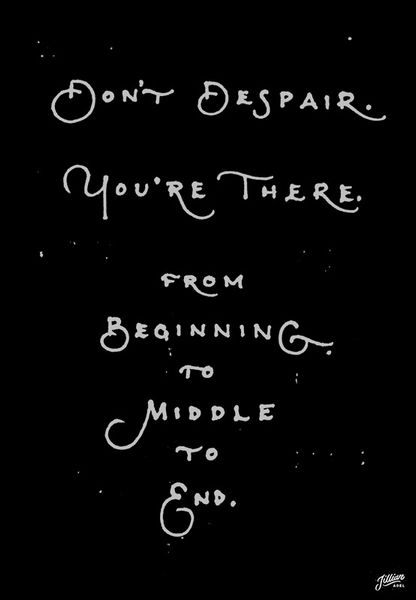 Don't Despair.
You're There.
From
Beginning.
to
Middle
to
End.
Jillian
ADEL